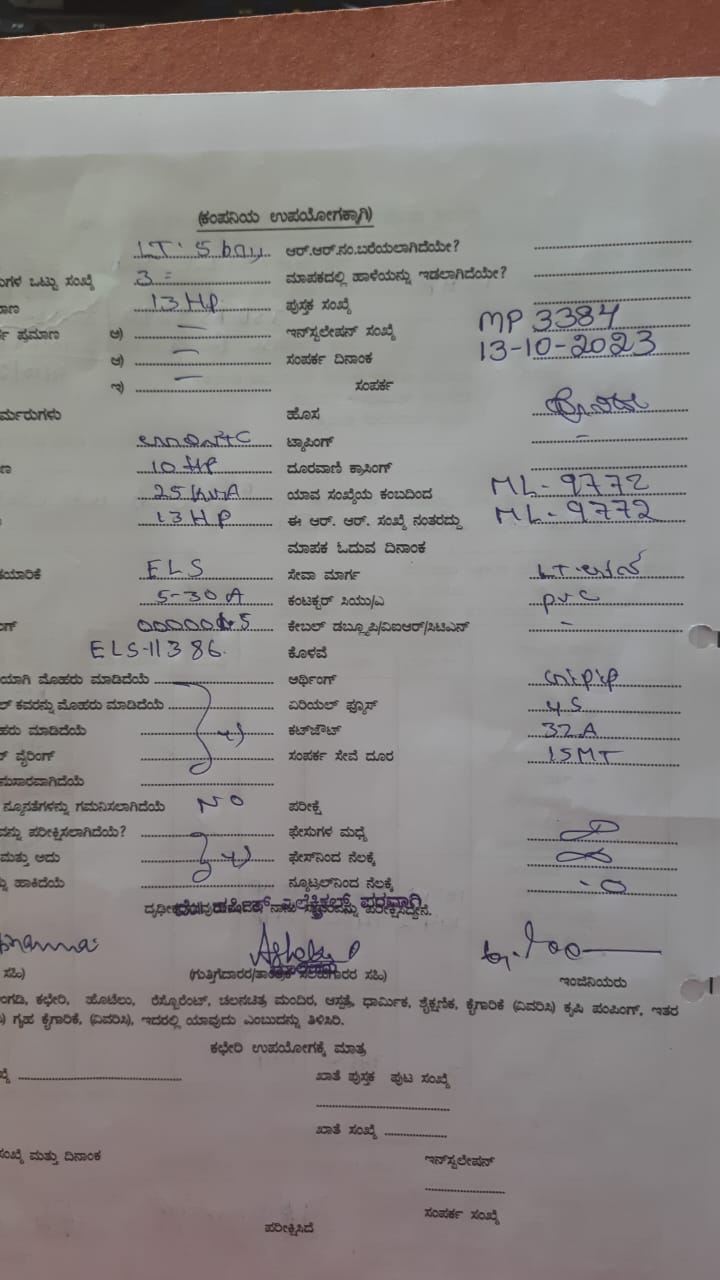 (ಕಂಪನಿಯ ಉಪಯೋಗಕ್ಕಾಗಿ)
LT. 5 ಆರ್.ಆರ್.ನಂ.ಬರೆಯಲಾಗಿದೆಯೇ?
ಗಳ ಒಟ್ಟು ಸಂಖ್ಯೆ 3 = ಮಾಪಕದಲ್ಲಿ ಹಾಳೆಯನ್ನು ಇಡಲಾಗಿದೆಯೇ?
13 HP ಪುಸ್ತಕ ಸಂಖ್ಯೆ
ಪ್ರಮಾಣ ಅ) — ಇನ್‌ಸ್ಟಲೇಷನ್ ಸಂಖ್ಯೆ MP 3384
ಆ) — ಸಂಪರ್ಕ ದಿನಾಂಕ 13-10-2023
ಇ) — ಸಂಪರ್ಕ
ರ್ಮರುಗಳು ಹೊಸ
ಟ್ಯಾಪಿಂಗ್ -
10 HP ದೂರವಾಣಿ ಕ್ರಾಸಿಂಗ್
25 KVA ಯಾವ ಸಂಖ್ಯೆಯ ಕಂಬದಿಂದ ML-9772
13 HP ಈ ಆರ್. ಆರ್. ಸಂಖ್ಯೆ ನಂತರದ್ದು ML-9772
ಮಾಪಕ ಓದುವ ದಿನಾಂಕ
ಯಾರಿಕೆ ELS ಸೇವಾ ಮಾರ್ಗ LT.
5-30A ಕಂಟಕ್ಟರ್ ಸಿಯು/ಎ pvc
ಕೇಬಲ್ ಡಬ್ಲ್ಯೂಪಿ/ವಿಐಆರ್/ಸಿಟಿಎನ್ -
ELS-11386. ಕೊಳವೆ
ಯಾಗಿ ಮೊಹರು ಮಾಡಿದೆಯೆ ಅರ್ಥಿಂಗ್
ಲ್ ಕವರನ್ನು ಮೊಹರು ಮಾಡಿದೆಯೆ ಏರಿಯಲ್ ಫ್ಯೂಸ್ 4S
ಹರು ಮಾಡಿದೆಯೆ ಕಟ್‌ಔಟ್ 32A
ವೈರಿಂಗ್ ಸಂಪರ್ಕ ಸೇವೆ ದೂರ 15MT
ನುಸಾರವಾಗಿದೆಯೆ
ನ್ಯೂನತೆಗಳನ್ನು ಗಮನಿಸಲಾಗಿದೆಯೆ NO ಪರೀಕ್ಷೆ
ವನ್ನು ಪರೀಕ್ಷಿಸಲಾಗಿದೆಯೆ? ಫೇಸುಗಳ ಮಧ್ಯೆ
ಮತ್ತು ಅದು ಫೇಸ್‌ನಿಂದ ನೆಲಕ್ಕೆ
ಹಾಕಿದೆಯೆ ನ್ಯೂಟ್ರಲ್‌ನಿಂದ ನೆಲಕ್ಕೆ
ಪರೀಕ್ಷಿಸಿದ್ದೇನೆ.
Ashok
ಸಹಿ) ಸಹಿ) ಇಂಜಿನಿಯರು
ಂಗಡಿ, ಕಛೇರಿ, ಹೊಟೆಲು, ರೆಸ್ಟೋರೆಂಟ್, ಚಲನಚಿತ್ರ ಮಂದಿರ, ಆಸ್ಪತ್ರೆ, ಧಾರ್ಮಿಕ, ಶೈಕ್ಷಣಿಕ, ಕೈಗಾರಿಕೆ (ವಿವರಿಸಿ) ಕೃಷಿ ಪಂಪಿಂಗ್, ಇತರ
) ಗೃಹ ಕೈಗಾರಿಕೆ, (ವಿವರಿಸಿ), ಇದರಲ್ಲಿ ಯಾವುದು ಎಂಬುದನ್ನು ತಿಳಿಸಿರಿ.
ಕಛೇರಿ ಉಪಯೋಗಕ್ಕೆ ಮಾತ್ರ
ಖಾತೆ ಪುಸ್ತಕ ಪುಟ ಸಂಖ್ಯೆ
ಖಾತೆ ಸಂಖ್ಯೆ
ಸಂಖ್ಯೆ ಮತ್ತು ದಿನಾಂಕ ಇನ್‌ಸ್ಟಲೇಷನ್
ಸಂಪರ್ಕ ಸಂಖ್ಯೆ
ಪರೀಕ್ಷಿಸಿದೆ